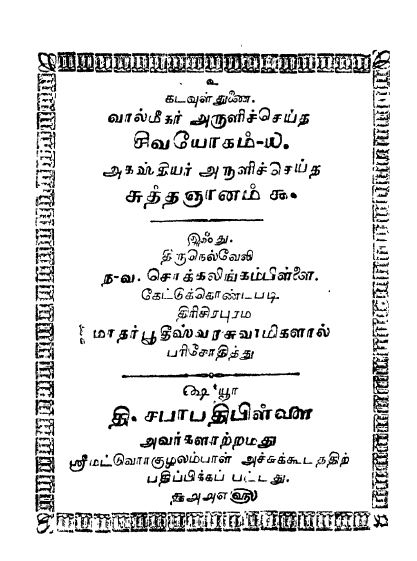 உ
கடவுள்துணை.
வால்மீகர் அருளிச்செய்த
சிவயோகம்-௰.
அகஸ்தியர் அருளிச்செய்த
சுத்தஞானம் ௯.
இஃது.
திருநெல்வேலி
ந-வ. சொக்கலிங்கம்பிள்ளை.
கேட்டுக்கொண்டபடி
திரிசிரபுரம
மாதர்பூதீஸ்வரசுவாமிகளால்
பரிசோதித்து
தி. சபாபதிபிள்ளை
அவர்களாற்றமது
ஸ்ரீமட்டுவாாகுழலம்பாள் அச்சுக்கூடததிற்
பதிப்பிக்கப் பட்டது.